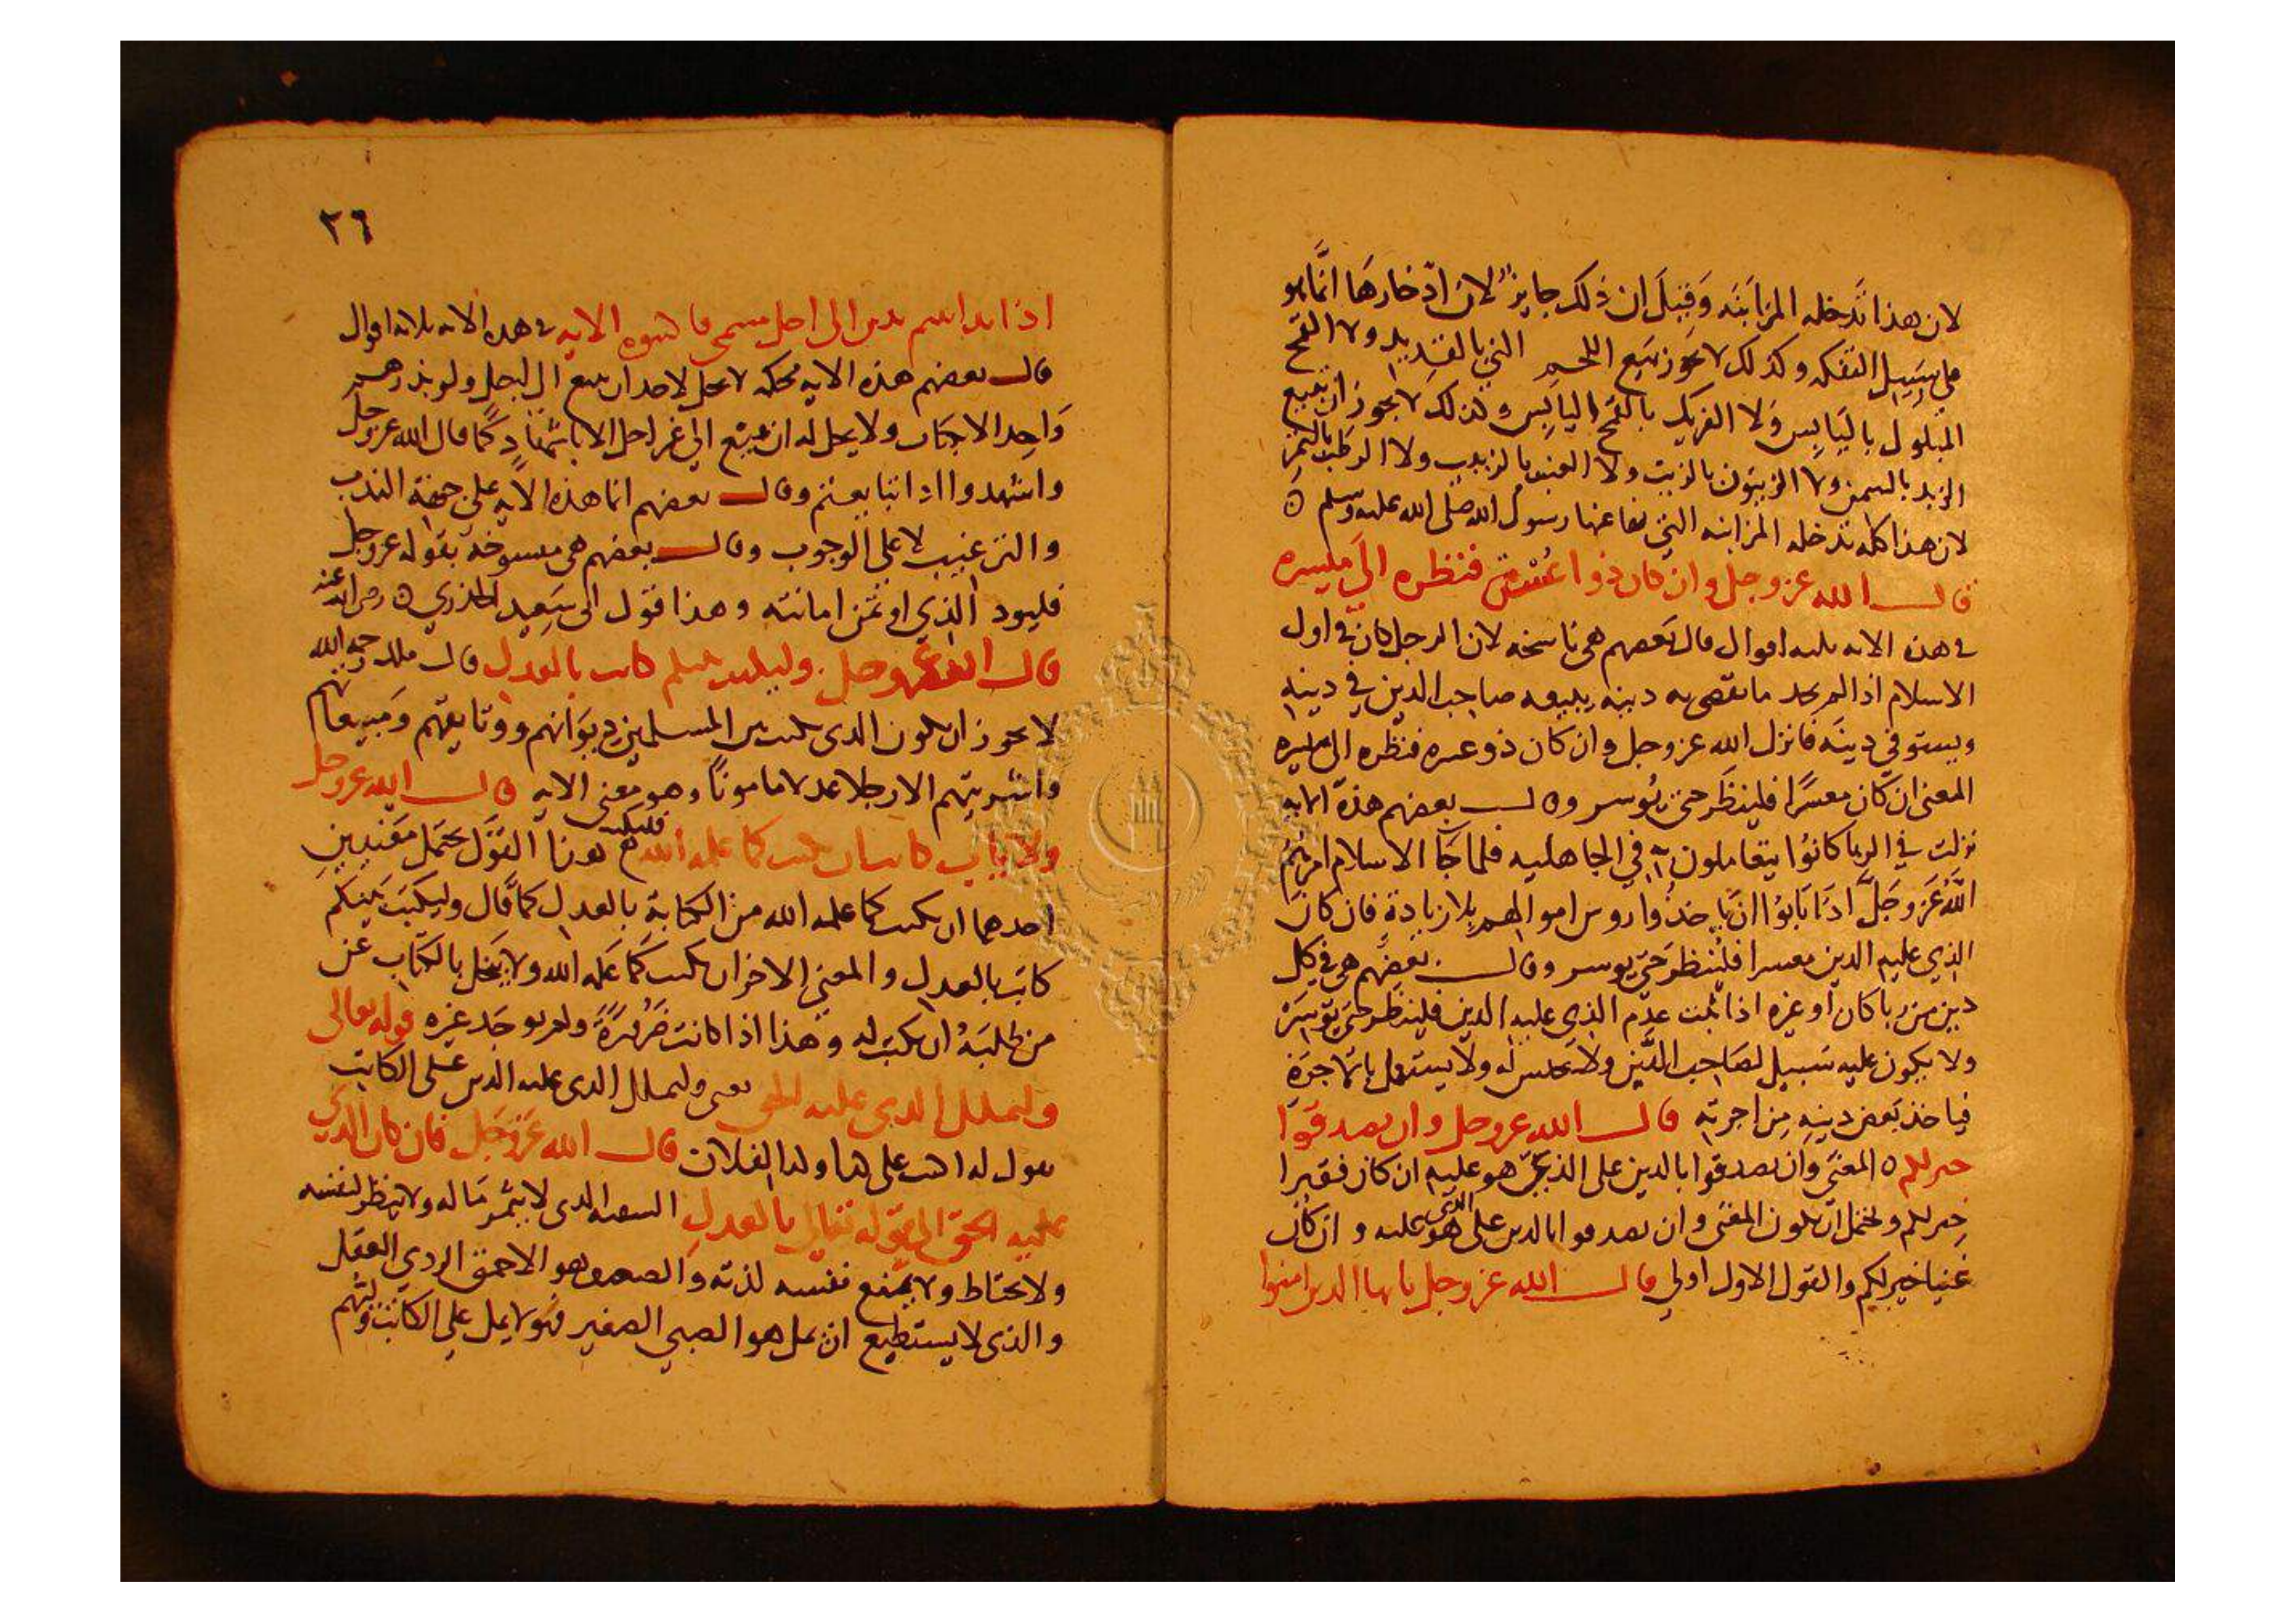 لان هذا تدخله المزابنه وقيل ان ذلك جايز لان ادخارها انما هو
على سبيل التفكه وكذلك لا يجوز بيع اللحم الني بالقديد ولا القمح
المبلول باليابس ولا الفريك بالقمح اليابس وكذلك لا يجوز ان تبيع
الزبد بالسمن ولا الزيتون بالزيت ولا العنب بالزبيب ولا الرطب بالتمر
لان هذا كله تدخله المزابنه التي نها عنها رسول الله صلى الله عليه وسلم
قال الله عز وجل وان كان ذوا عسرة فنظره الى ميسره
في هذه الايه ثلثه اقوال قال بعضهم هي ناسخه لان الرجل كان في اول
الاسلام اذا لم يجد ما يقضي به دينه يبيعه صاحب الدين في دينه
ويستوفي دينه فانزل الله عز وجل وان كان ذو عسره فنظره الى ميسره
المعنى ان كان معسرا فلينظر حتى يوسر وقال بعضهم هذه الايه
نزلت في الربا كانوا يتعاملون به في الجاهليه فلما جا الاسلام امرهم
الله عز وجل اذا تابوا ان ياخذوا روس اموالهم بلا زيادة فان كان
الذي عليه الدين معسرا فلينظر حتى يوسر وقال بعضهم هي في كل
دين من ربا كان او غيره اذا ثبت عدم الذي عليه الدين فلينظر حتى يوسر
ولا يكون عليه سبيل لصاحب الدين ولا يحبس له ولا يستعمل باتجاجره
فياخذ بعض دينه من اجرته قال الله عز وجل وان تصدقوا
خير لكم المعنى وان تصدقوا بالدين على الذي هو عليه ان كان فقيرا
خير لكم ويحتمل ان يكون المعنى وان تصدقوا بالدين على الذي هو عليه وان كان
غنيا خير لكم والقول الاول اولى قال الله عز وجل يا يها الذين امنوا
٢٦
اذا تداينتم بدين الى اجل مسمى فاكتبوه الايه في هذه الايه ثلاثه اقوال
قال بعضهم هذه الايه محكمه لا يحل لاحد ان يبيع الى اجل ولو بدرهم
واحد الا بكتاب ولا يحل له ان يبيع الى غير اجل الا باشهاد كما قال الله عز وجل
واشهدوا اذا تبايعتم وقال بعضهم انما هذه الايه على جهة الندب
والترغيب لا على الوجوب وقال بعضهم هي منسوخة بقوله عز وجل
فليود الذي اوتمن امانته وهذا قول ابي سعيد الخدري رضي الله عنه
قال الله عز وجل وليكتب بينكم كاتب بالعدل قال ملك رحمه الله
لا يجوز ان يكون الذي يكتب بين المسلمين ديوانهم ووثايقهم ومبيعاتهم
واشريتهم الا رجلا عدلا مامونا وهو معنى الايه قال الله عز وجل
ولا ياب كاتب ان يكتب كما علمه الله فليكتب هذا القول يحتمل معنيين
احدهما ان يكتب كما علمه الله من الكتابة بالعدل كما قال وليكتب بينكم
كاتب بالعدل والمعنى الاخر ان يكتب كما علمه الله ولا يبخل بالكتاب عن
من طلبه ان يكتب له وهذا اذا كانت ضرورة ولم يوجد غيره قوله تعالى
وليملل الذي عليه الحق يعني وليملل الذي عليه الدين على الكاتب
يقول له اكتب على كذا وكذا لفلان قال الله عز وجل فان كان الذي
عليه الحق الى قوله تعالى بالعدل السفيه الذي لا يثمر ماله ولا ينظر لنفسه
ولا يحتاط ولا يمنع نفسه لذته والضعيف وهو الاحمق الردي العقل
والذي لا يستطيع ان يمل هو الصبي الصغير فهو لا يمل على الكاتب وليهم